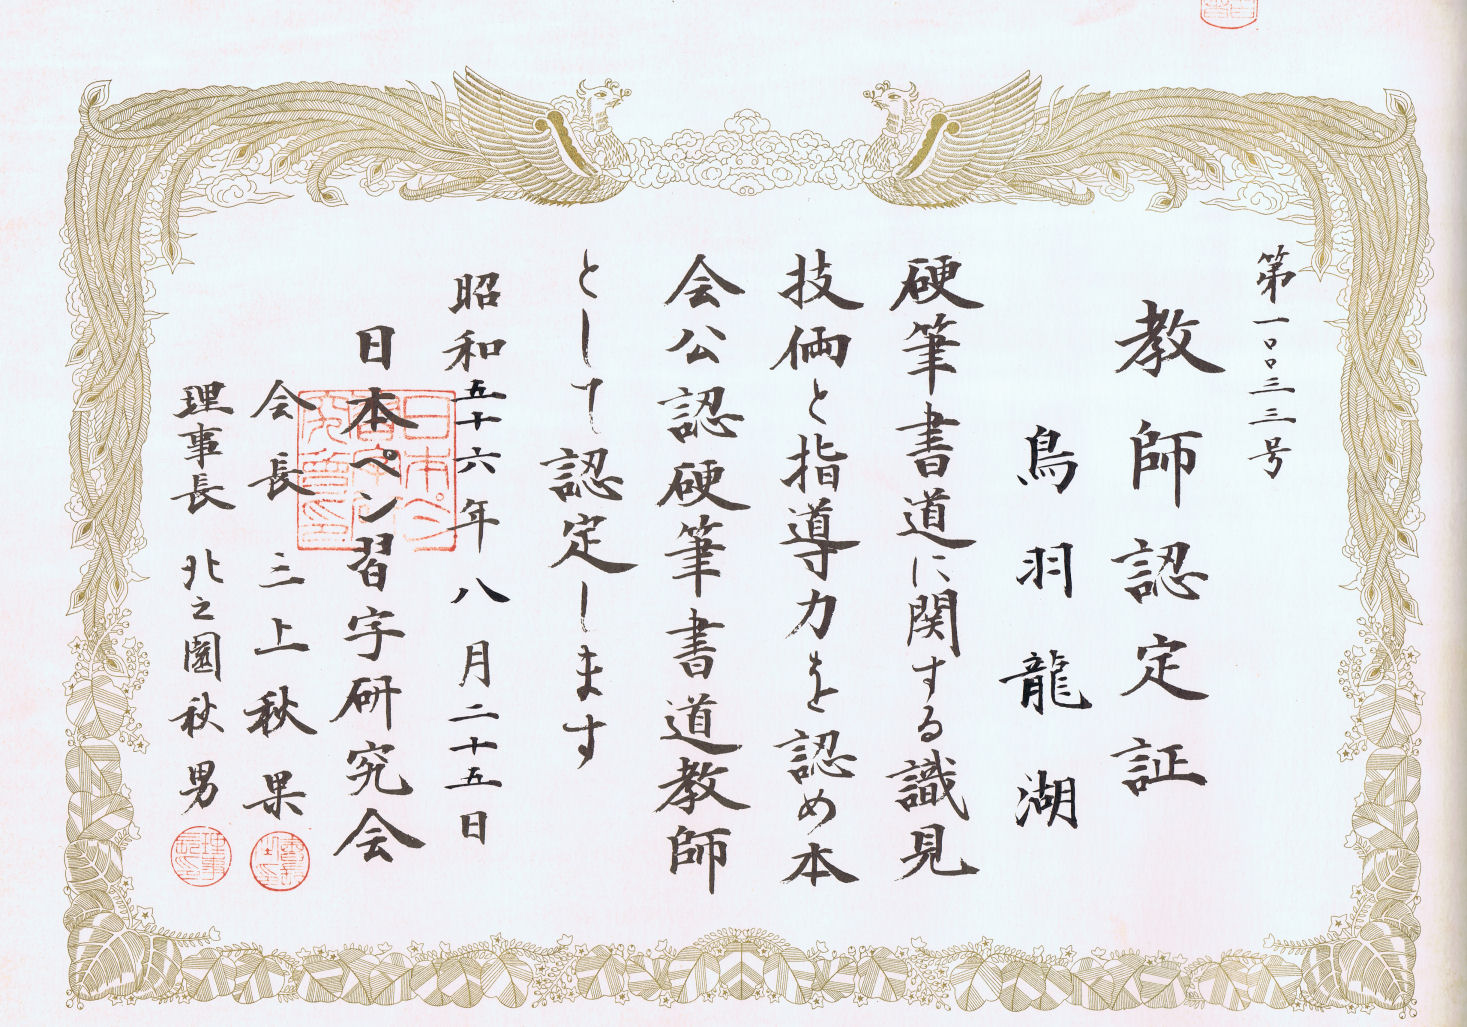 第一〇〇三三号
教師認定証
鳥羽龍湖
硬筆書道に関する識見
技倆と指導力を認め本
会公認硬筆書道教師
として認定します
昭和五十六年八月二十五日
日本ペン習字研究会
会長 三上秋果
理事長 北之園秋男